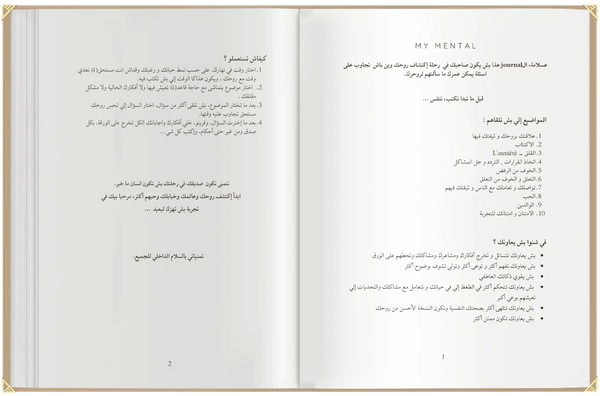 MY MENTAL
عسلامة، الjournal هذا بش يكون صاحبك في رحلة إكتشاف روحك وين باش تجاوب على
اسئلة يمكن عمرك ما سألتهم لروحك.
قبل ما تبدا تكتب، تنفس ...
المواضيع إلي بش تلقاهم :
1. علاقتك بروحك و ثيقتك فيها
2. الاكتئاب
3. القلق _ L'anxiété
4. اتخاذ القرارات , التردد و حل المشاكل
5. الخوف من الرفض
6. التعلق و الخوف من التعلق
7. تواصلك و تعاملك مع الناس و ثيقتك فيهم
8. الحب
9. الوالدين
10. الامتنان و امتنانك للتجربة
في شنوا بش يعاونك ؟
• بش يعاونك تتسائل و تخرج أفكارك ومشاعرك ومشاكلك وتحطهم على الورق
• بش يعاونك تفهم أكثر و توعى أكثر وتولي تشوف بوضوح أكثر
• بش يقوي ذكائك العاطفي
• بش يعاونك تتحكم أكثر في الظغط إلي في حياتك و تتعامل مع مشاكلك والتحديات إلي
تعيشهم بوعي أكبر
• بش يعاونك تتلهى أكثر بصحتك النفسية وتكون النسخة الأحسن من روحك
• بش يعاونك تكون ممتن أكثر
1
كيفاش تستعملو ؟
1. اختار وقت في نهارك، على حسب نمط حياتك و رغبتك وقداش انت مستحق(ة) تعدي
وقت مع روحك , ويكون هذاكا الوقت إلي بش تكتب فيه.
2. اختار موضوع يتماشى مع حاجة قاعد(ة) تعيش فيها ولا أفكارك الحالية ولا مشكل
مقلقك .
3. بعد ما تختار الموضوع، بش تلقى أكثر من سؤال، اختار السؤال إلي تحس روحك
مستحق تجاوب عليه وقتها.
4. بعد ما إخترت السؤال، وقريتو، خلي أفكارك واجاباتك الكل تخرج على الورقة، بكل
صدق ومن غير حتى أحكام، وإكتب كل شي ...
نتمنى نكون صديقتك في رحلتك بش تكون انسان ما خير.
ابدأ إكتشف روحك وعالمك وخباياتك وحبهم أكثر، مرحبا بيك في
تجربة بش تهزك لبعيد ...
تمنياتي بالسلام الداخلي للجميع.
2